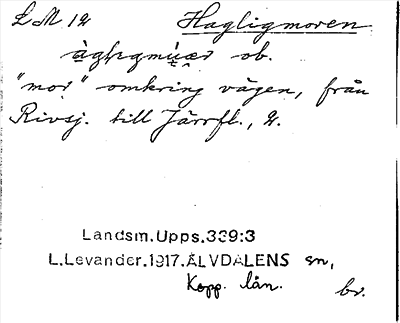 L M 12 Hagligmoren
ob.
"mor" omkring vägen, från
Rivsj. till Järrfl., 2.
Landsm.Upps.339:3
L.Levander.1917.ÄLVDALENS sn,
Kopp. län.
br.